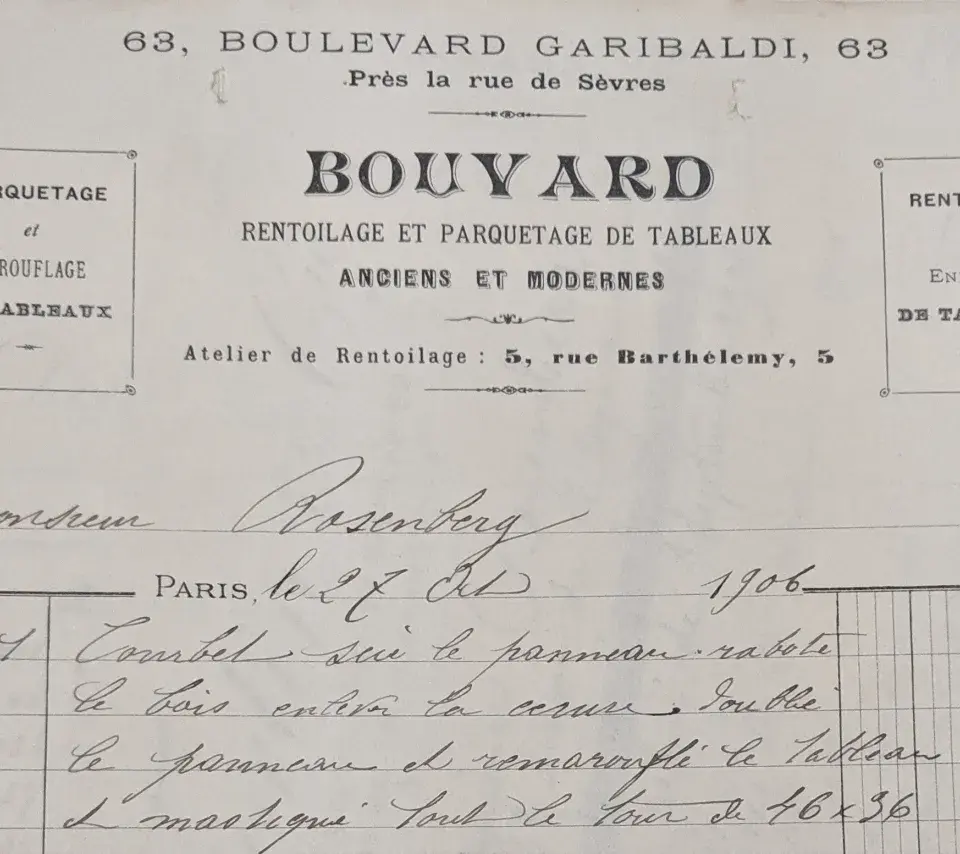 63, BOULEVARD GARIBALDI, 63
Près la rue de Sèvres
BOUVARD
RENTOILAGE ET PARQUETAGE DE TABLEAUX
ANCIENS ET MODERNES
Atelier de Rentoilage : 5, rue Barthélemy, 5
RQUETAGE
et
ROUFLAGE
ABLEAUX
RENT
EN
DE TA
onsieur Rosenberg
PARIS, le 27 Oct 1906
1 Courbet scié le panneau raboté
le bois enlevé la ceruse. Doublé
le panneau et remarouflé le tableau
et mastiqué tout le tour de 46 x 36